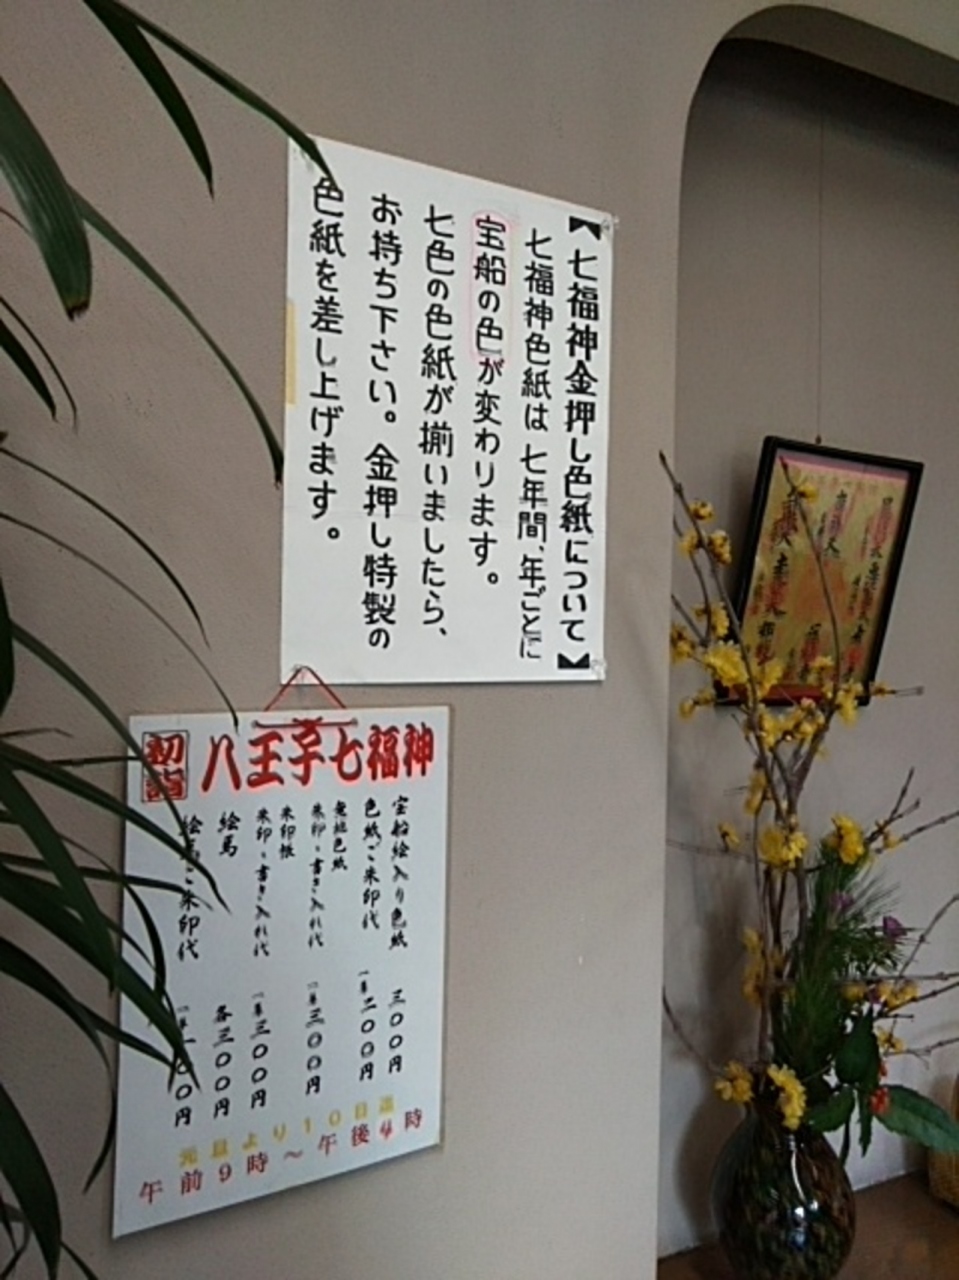 【七福神金押し色紙について】
七福神色紙は七年間、年ごとに
宝船の色が変わります。
七色の色紙が揃いましたら、
お持ち下さい。金押し特製の
色紙を差し上げます。
初詣
八王子七福神
宝船絵入り色紙 三〇〇円
色紙ご朱印代 二〇〇円
無地色紙
朱印・書き入れ代 三〇〇円
朱印帳
朱印・書き入れ代 三〇〇円
絵馬 各三〇〇円
絵馬ご朱印代 一〇〇円
元旦より10日迄
午前9時～午後4時